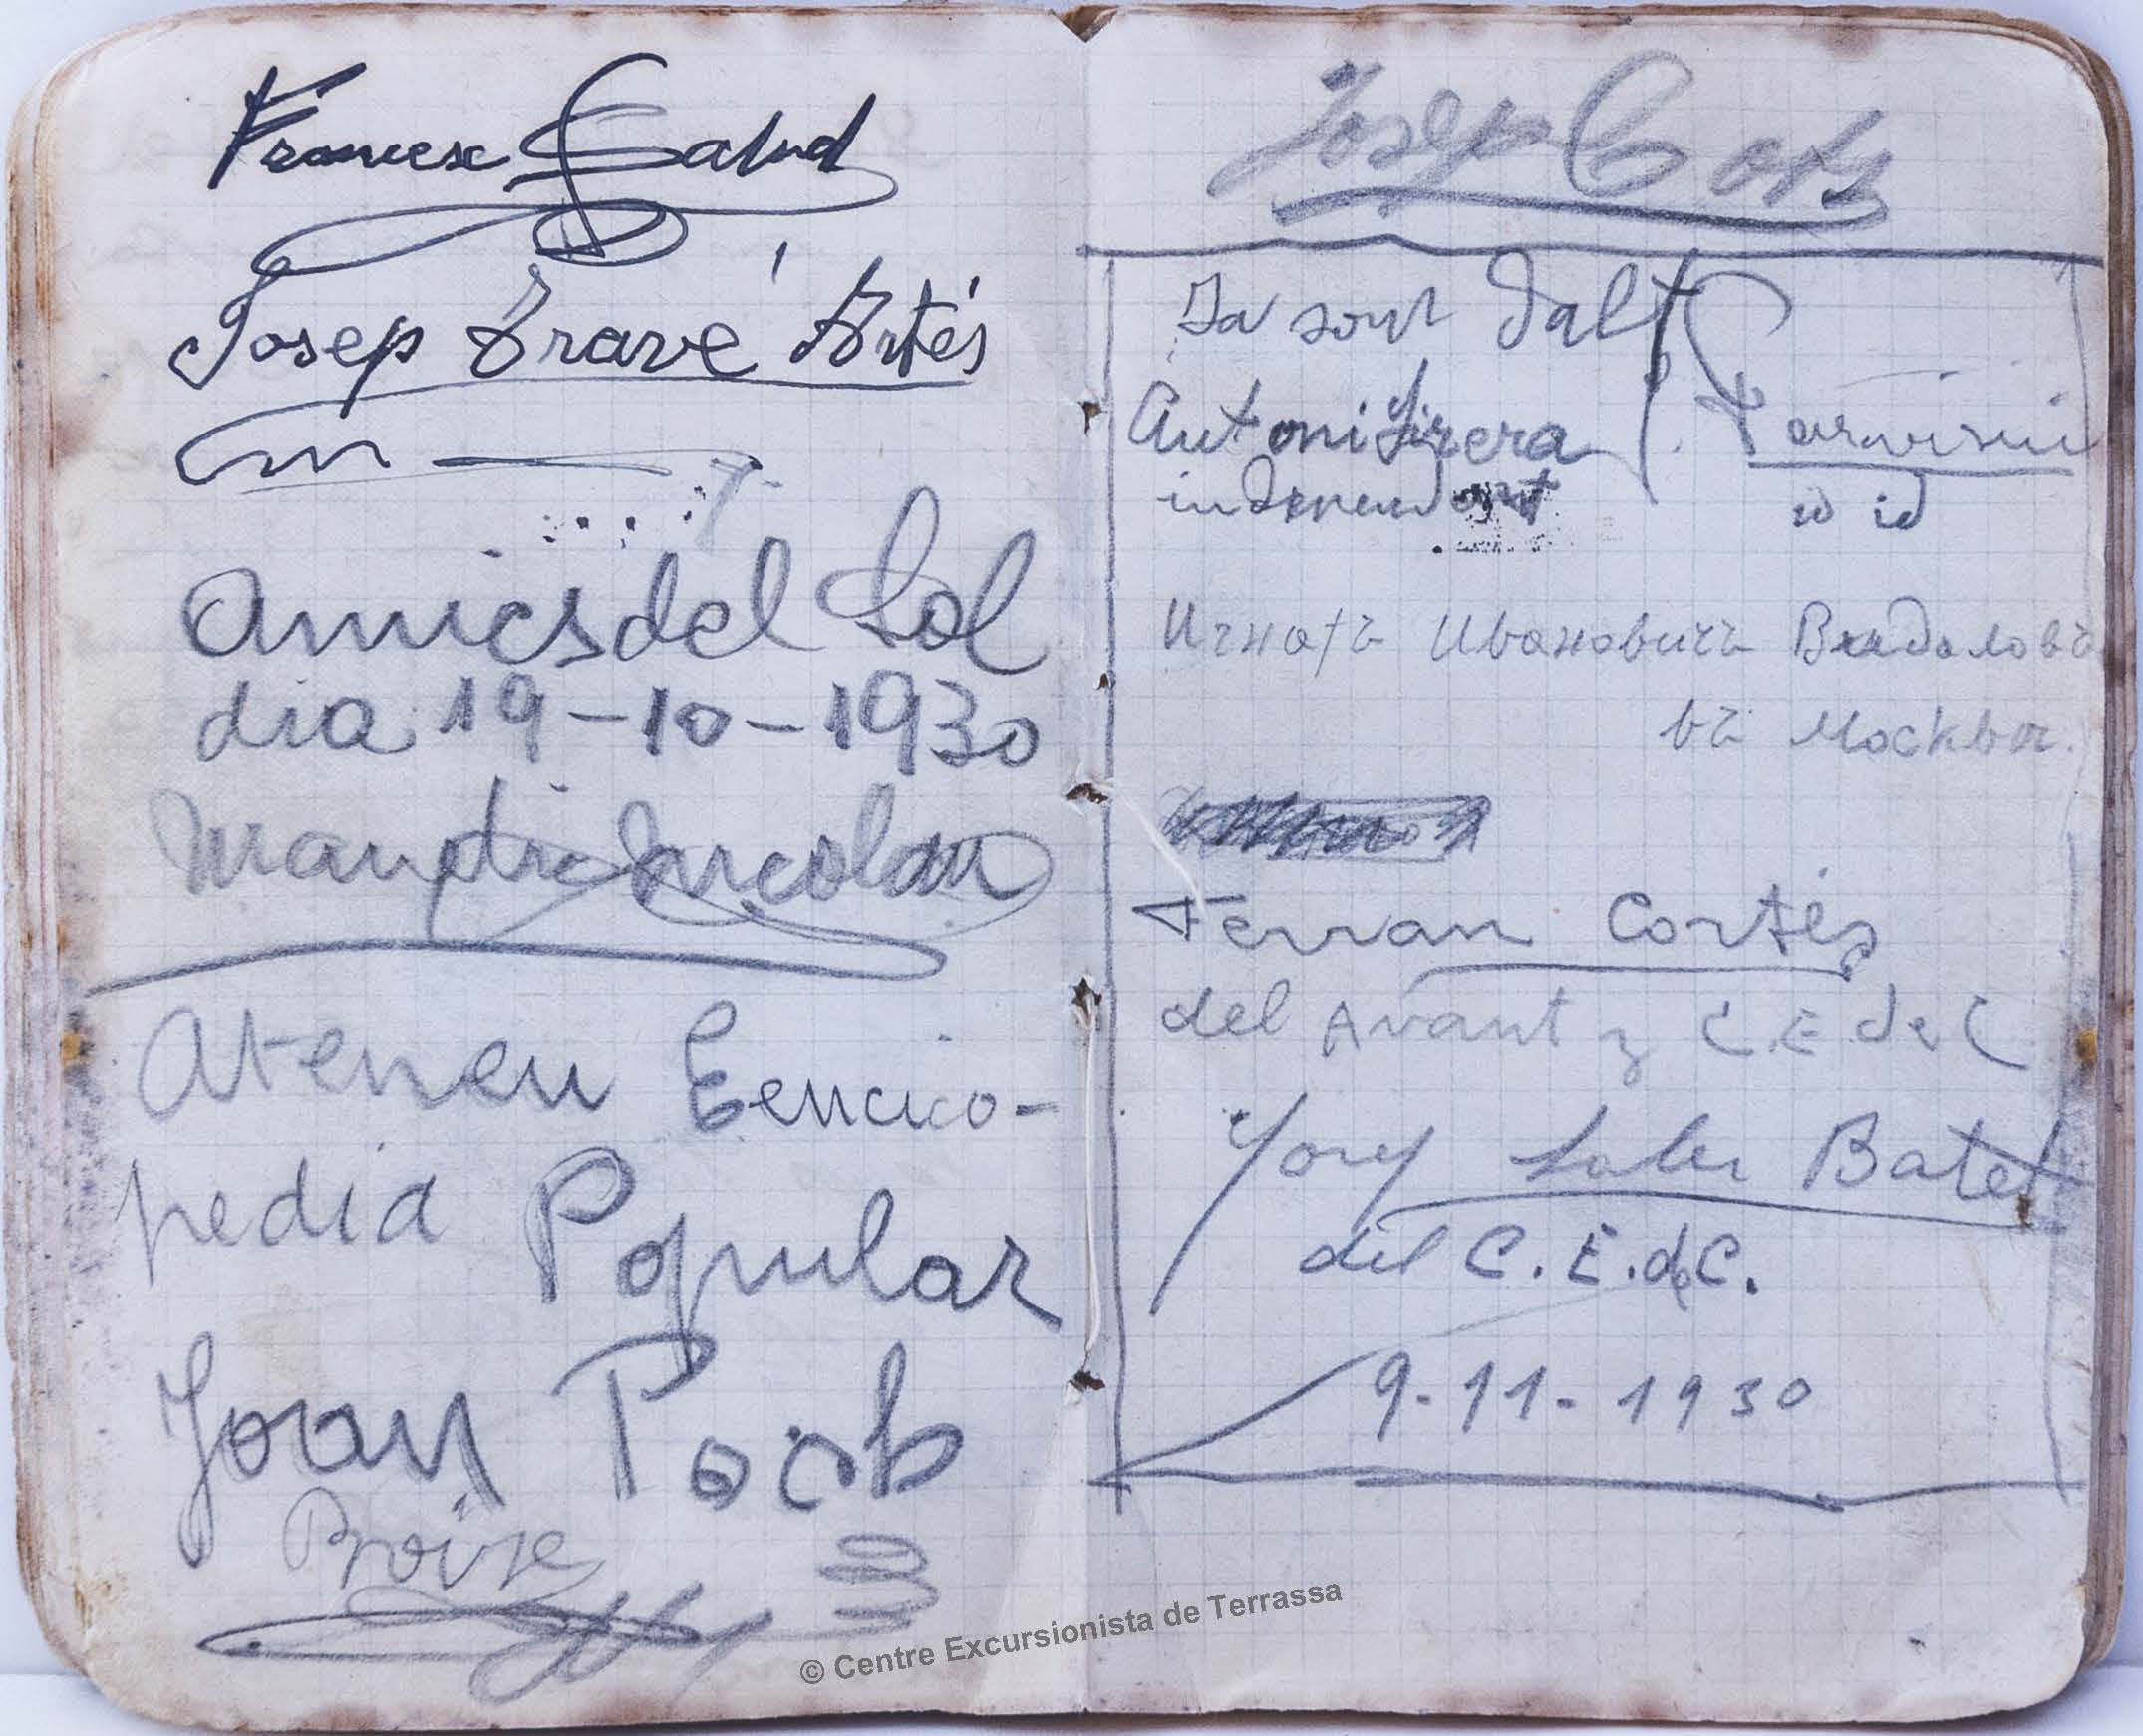 Francesc Salud
Josep Travé Artés
Amics del Sol
dia 19-10-1930
Nicolau
Ateneu Eencico-
pedia Popular
Joan Poch
Josep Cots
Ja som dalt
Antoni
independent
id id
Игнатъ Ивановичъ
въ Москвы.
Ferran Cortés
del Avant y C.E de C
Josep Batet
del C.E.de C.
9-11-1930
© Centre Excursionista de Terrassa